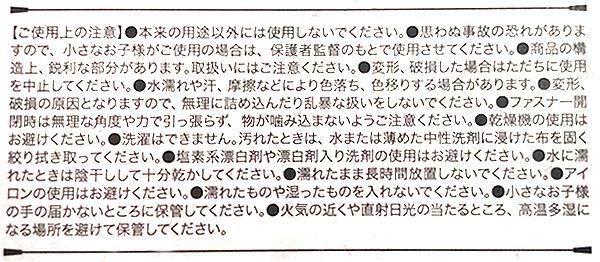 【ご使用上の注意】●本来の用途以外には使用しないでください。●思わぬ事故の恐れがありま
すので、小さなお子様がご使用の場合は、保護者監督のもとで使用させてください。●商品の構
造上、鋭利な部分があります。取扱いにはご注意ください。●変形、破損した場合はただちに使用
を中止してください。●水濡れや汗、摩擦などにより色落ち、色移りする場合があります。●変形、
破損の原因となりますので、無理に詰め込んだり乱暴な扱いをしないでください。●ファスナー開
閉時は無理な角度や力で引っ張らず、物が噛み込まないようご注意ください。●乾燥機の使用は
お避けください。●洗濯はできません。汚れたときは、水または薄めた中性洗剤に浸けた布を固く
絞り拭き取ってください。●塩素系漂白剤や漂白剤入り洗剤の使用はお避けください。●水に濡
れたときは陰干しして十分乾かしてください。●濡れたまま長時間放置しないでください。●アイ
ロンの使用はお避けください。●濡れたものや湿ったものを入れないでください。●小さなお子様
の手の届かないところに保管してください。●火気の近くや直射日光の当たるところ、高温多湿に
なる場所を避けて保管してください。